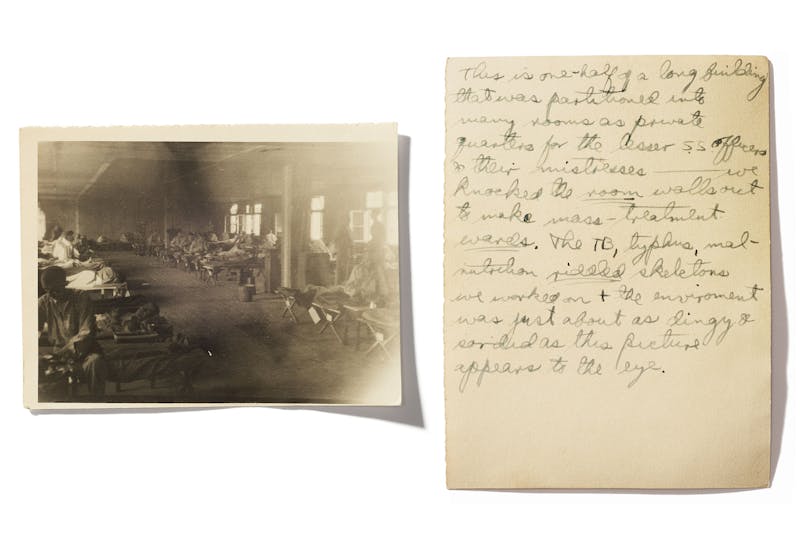 This is one-half of a long building
that was partitioned into
many rooms as private
quarters for the lesser SS officers
& their mistresses — we
knocked the room walls out
to make mass-treatment
wards. The TB, typhus, mal-
nutrition riddled skeletons
we worked on + the enviroment
was just about as dingy &
sordid as this picture
appears to the eye.